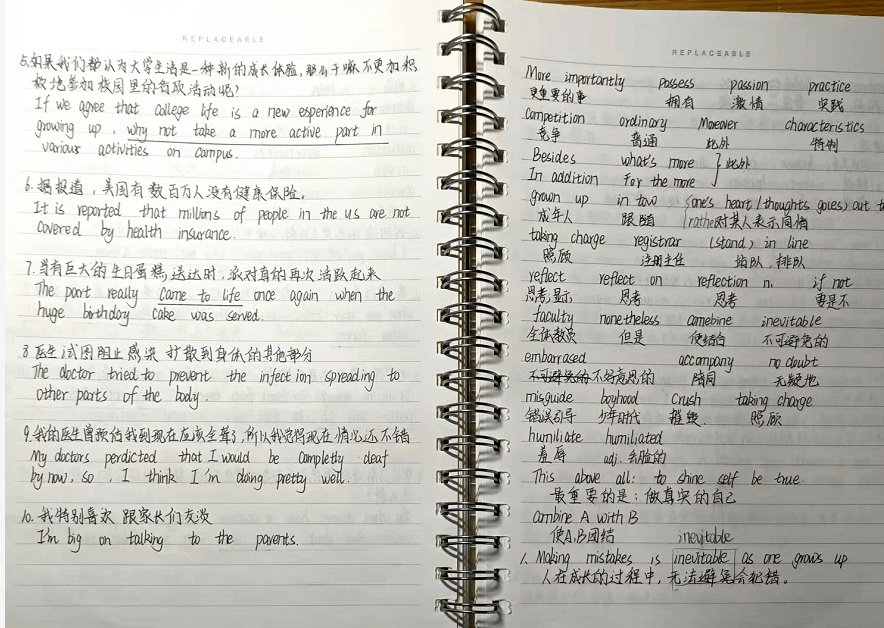 REPLACEABLE
5.如果我们都认为大学生活是一种新的成长体验,那么干嘛不更加积
极地参加校园里的各项活动呢?
If we agree that college life is a new esperience for
growing up, why not take a more active part in
various activities on campus.
6. 据报道,美国有数百万人没有健康保险.
It is reported that millions of people in the us are not
covered by health insurance.
7.当有巨大的生日蛋糕送达时,派对真的再次活跃起来
The part really came to life once again when the
huge birthdoy cake was served.
8.医生试图阻止感染扩散到身体的其他部分
The doctor tried to prevent the infection spreading to
other parts of the body.
9.我的医生曾预估我到现在应该全聋了,所以我觉得现在情况还不错
My doctors perdicted that I would be completly deaf
by now, so, I think I'm doing pretty well.
10. 我特别喜欢跟家长们交谈
I'm big on talking to the parents.
REPLACEABLE
More importantly possess passion practice
更重要的事 拥有 激情 实践
Competition ordinary Moreover characteristics
竞争 普通 此外 特制
Besides what's more
此外
In addition For the more
grown up in tow (one's heart/thoughts goes) out t
成年人 跟随 对某人表示同情
taking charge registrar (stand) in line
照顾 注册主任 站队,排队
reflect reflect on reflection n. if not
思考,显示 思考 思考 要是不
faculty nonetheless comebine inevitable
全体教员 但是 使结合 不可避免的
embarrased accompany no doubt
不可避免的 不好意思的 陪同 无疑地
misguide boyhood crush taking charge
错误引导 少年时代 摧毁 照顾
humiliate humiliated
羞辱 adj. 丢脸的
This above all: to shine self be true.
最重要的是:做真实的自己
combine A with B
使A,B团结 inevitable
1. Making mistakes is inevitable as one grows up
人在成长的过程中,无法避免会犯错。